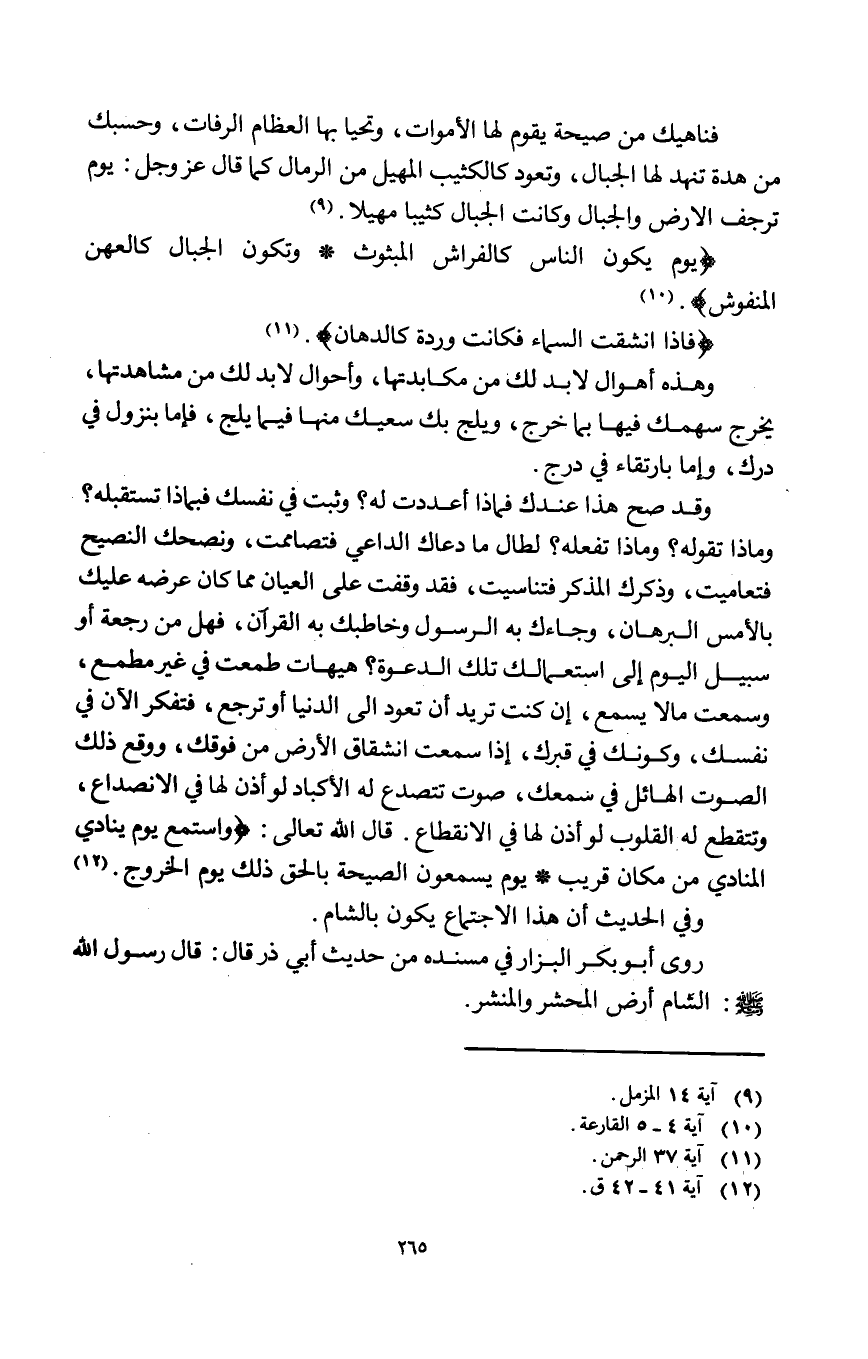 فناهيك من صيحة يقوم لها الأموات، وتحيا بها العظام الرفات، وحسبك
من هدة تنهد لها الجبال، وتعود كالكثيب المهيل من الرمال كما قال عز وجل: يوم
ترجف الارض والجبال وكانت الجبال كثيبا مهيلا. (٩)
﴿يوم يكون الناس كالفراش المبثوث * وتكون الجبال كالعهن
المنفوش﴾. (١٠)
﴿فاذا انشقت السماء فكانت وردة كالدهان﴾. (١١)
وهذه أهوال لابد لك من مكابدتها، وأحوال لابد لك من مشاهدتها،
يخرج سهمك فيها بما خرج، ويلج بك سعيك منها فيما يلج، فإما بنزول في
درك، وإما بارتقاء في درج.
وقد صح هذا عندك فماذا أعددت له؟ وثبت في نفسك فبماذا تستقبله؟
وماذا تقوله؟ وماذا تفعله؟ لطال ما دعاك الداعي فتصاممت، ونصحك النصيح
فتعاميت، وذكرك المذكر فتناسيت، فقد وقفت على العيان مما كان عرضه عليك
بالأمس البرهان، وجاءك به الرسول وخاطبك به القرآن، فهل من رجعة أو
سبيل اليوم إلى استعمالك تلك الدعوة؟ هيهات طمعت في غير مطمع،
وسمعت مالا يسمع، إن كنت تريد أن تعود الى الدنيا أو ترجع، فتفكر الآن في
نفسك، وكونك في قبرك، إذا سمعت انشقاق الأرض من فوقك، ووقع ذلك
الصوت الهائل في سمعك، صوت تتصدع له الأكباد لو أذن لها في الانصداع،
وتتقطع له القلوب لو أذن لها في الانقطاع. قال الله تعالى: ﴿واستمع يوم ينادي
المنادي من مكان قريب * يوم يسمعون الصيحة بالحق ذلك يوم الخروج. (١٢)
وفي الحديث أن هذا الاجتماع يكون بالشام.
روى أبو بكر البزار في مسنده من حديث أبي ذر قال: قال رسول الله
ﷺ: الشام أرض المحشر والمنشر.
(٩) آية ١٤ المزمل.
(١٠) آية ٤ ـ ٥ القارعة.
(١١) آية ٣٧ الرحمن.
(١٢) آية ٤١ ـ ٤٢ ق.
٢٦٥